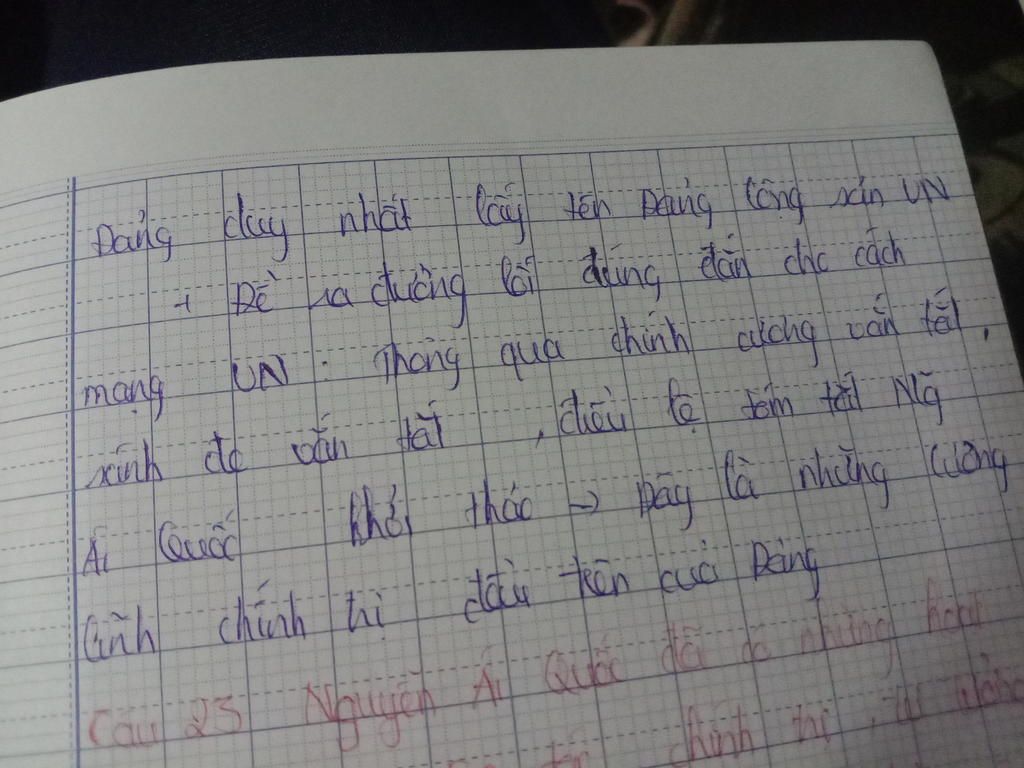 Đảng duy nhất lấy tên Đảng Cộng sản VN
+ Đề ra đường lối đúng đắn cho cách
mạng VN : Thông qua chính cương vắn tắt,
sách đc vắn tắt , điều lệ tóm tắt Ng
Ái Quốc khởi thảo → Đây là những cương
lĩnh chính trị đầu tiên của Đảng
Câu 23 Nguyễn Ái Quốc đã có những hoạt
chính trị , tư